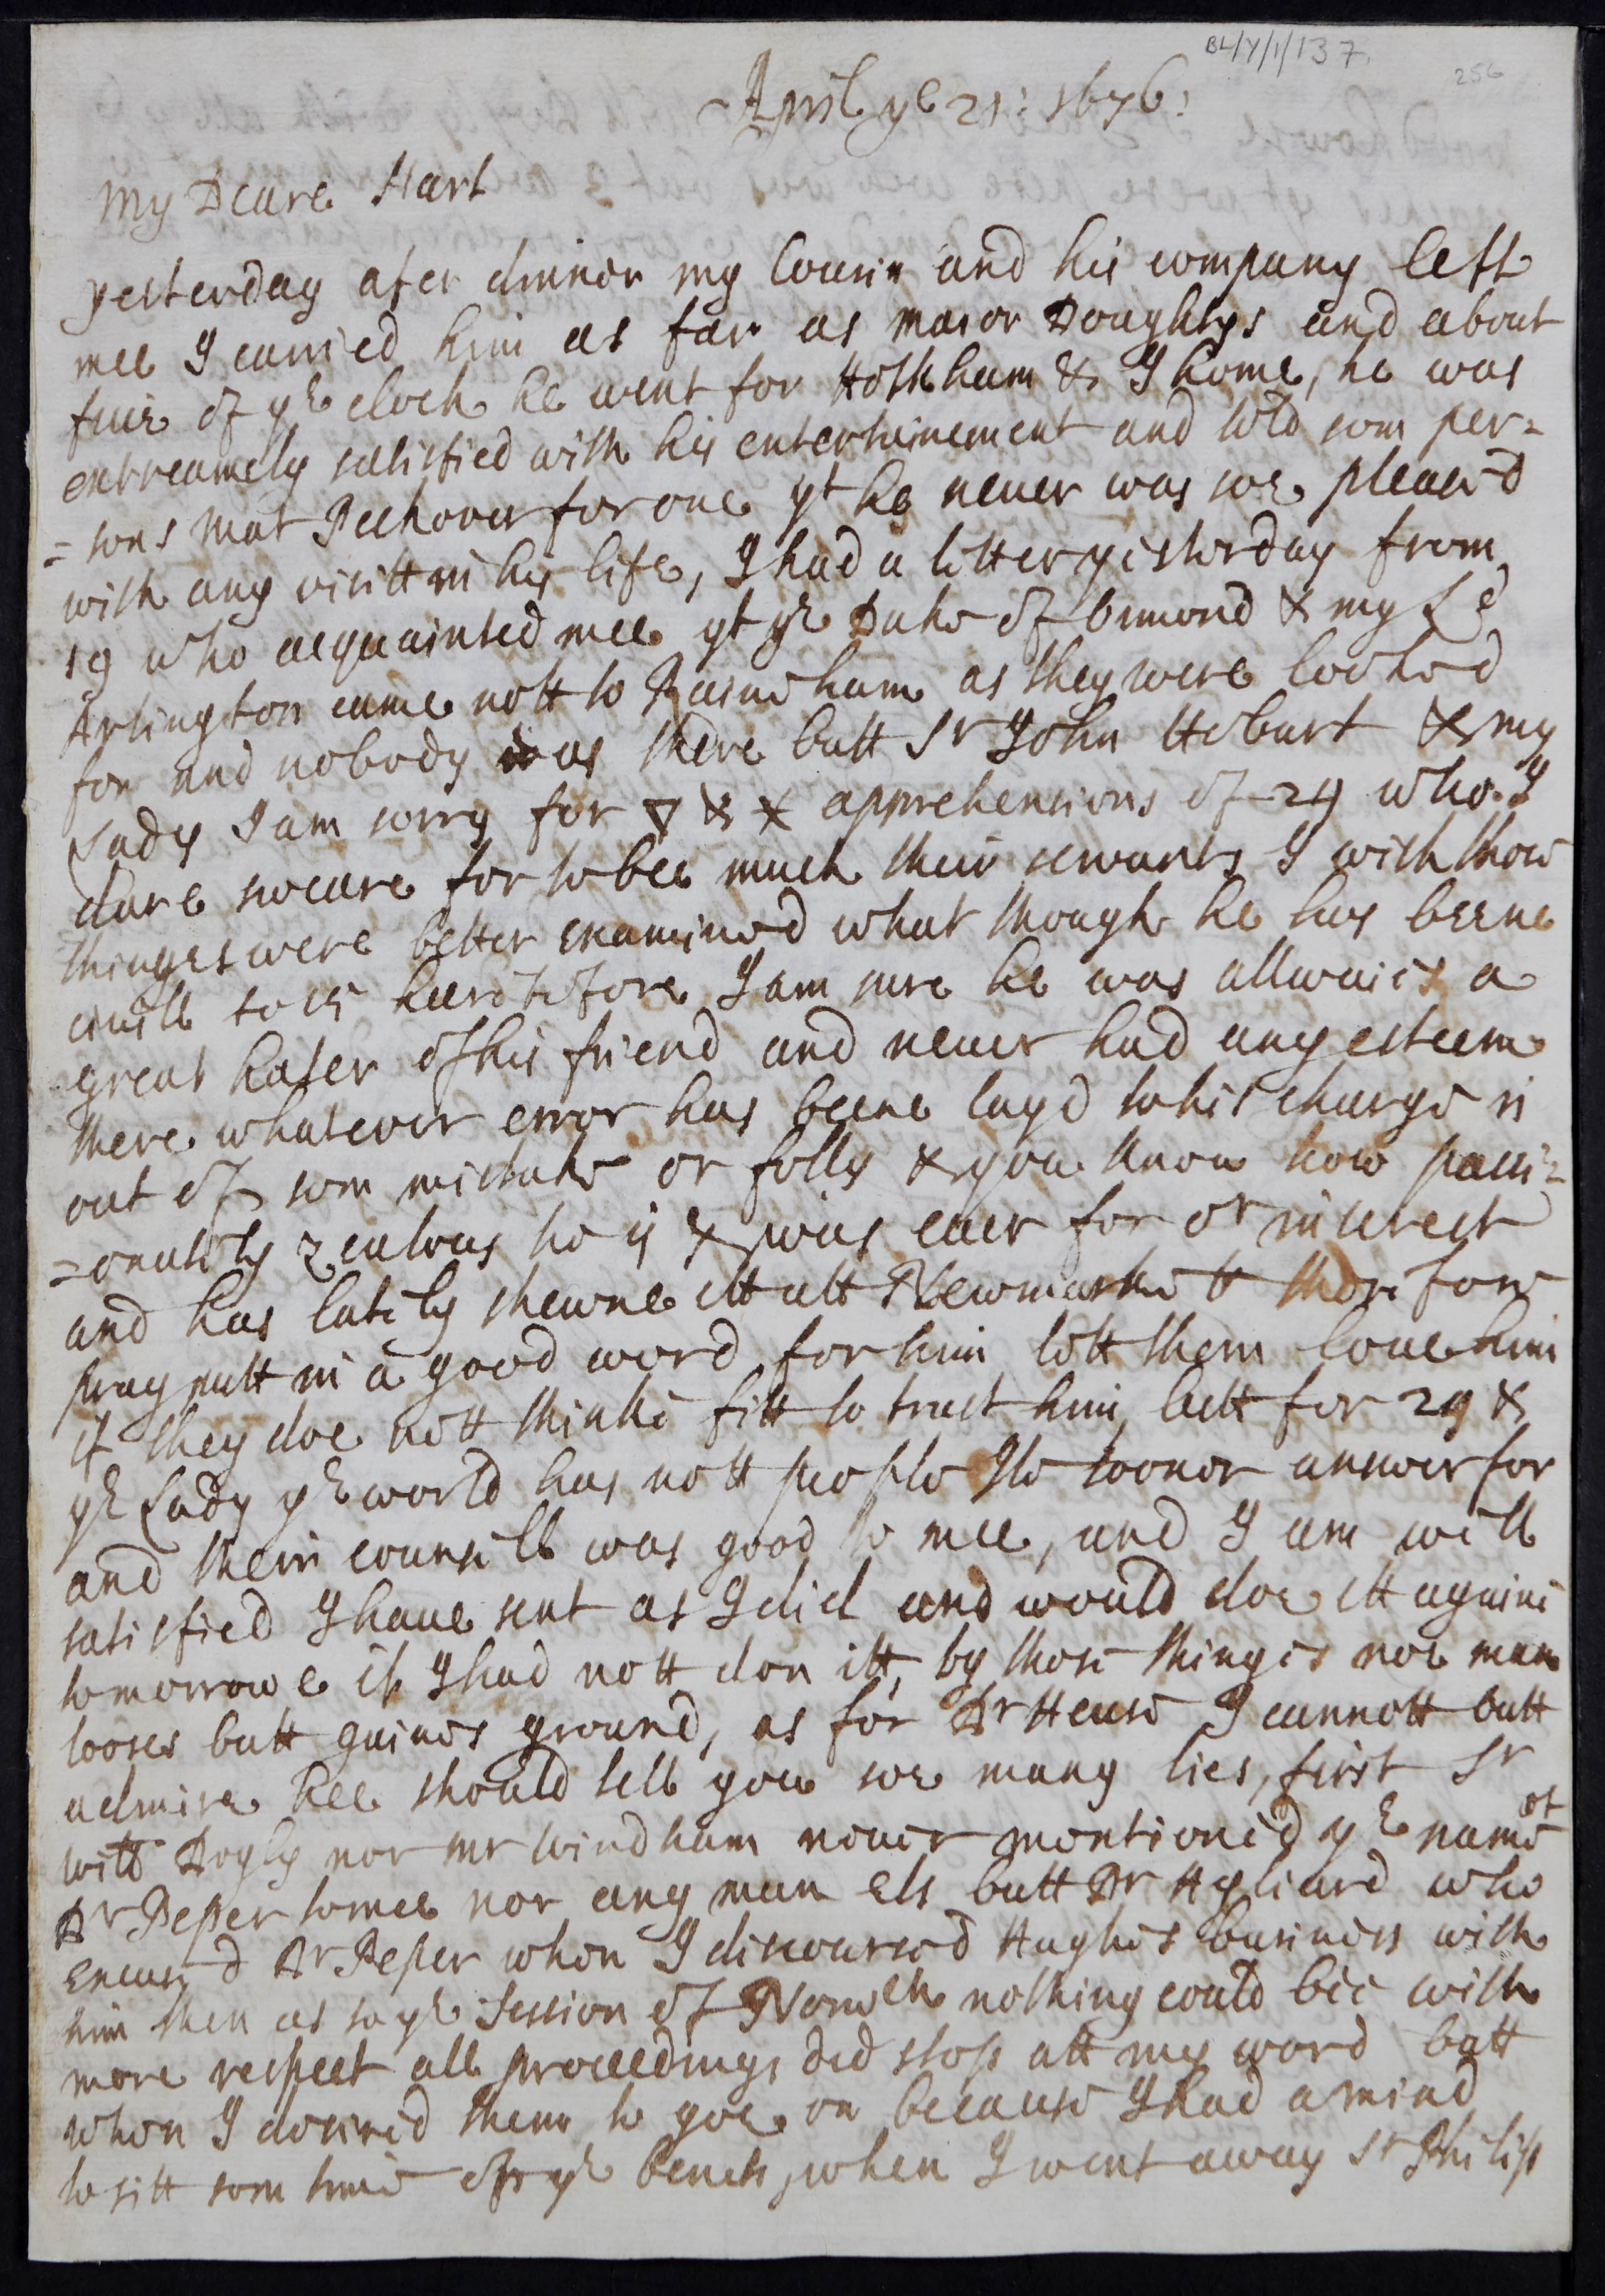 BL/Y/1/137
256
April ye 21: 1676:
My Deare Hart
yesterday after dinner my Cousin and his company left
mee I carried him as far as maior Doughtys and about
fiue of ye clock he went for Holkham & I home, he was
extreamely satisfied with his entertainement and told som per=
=sons Mat Peckover for one yt he neuer was soe pleas'd
with any visitt in his life, I had a letter yesterday from
19 who acquainted mee yt ye Duke of Ormond & my Ld
Arlington came nott to Rainham as they were looked
for and nobody was there butt Sr John Hobart & my
Lady I am sorry for ▽ & x apprehensions of 29 who I
dare sweare for to bee much their servants I wish those
thinges were better examined what though he has beene
ciuill to 15 heeretofore I am sure he was allwaies a
great hater of his friend and neuer had any esteem
there whatever error has beene layd to his charge is
out of som mistake or folly & you know how passi=
=onately zealous he is & was euer for or interest
and has lately shewne itt att Newmarkett therefore
pray putt in a good word for him lett them loue him
if they doe nott thinke fitt to trust him, butt for 29 &
ye Lady ye world has nott people Ile sooner answer for
and their counsell was good to mee, and I am well
satisfied I haue sent as I did and would doe itt againe
tomorrowe if I had nott don itt, by those thinges noe man
looses butt gaines ground, as for Dr Hause I cannott butt
admire hee should tell you soe many lies, first Sr
Will Doyly nor Mr Windham neuer mentioned ye name of
Dr Peper to mee nor any man els butt Dr Hyliard who
excus'd Dr Peper when I discoursed Hughes business with
him then as to ye Session of Norwch nothing could bee with
more respect all proceedings did stop att my word butt
when I desired them to goe on because I had a mind
to sitt som time on ye bench, when I went away Sr Philip